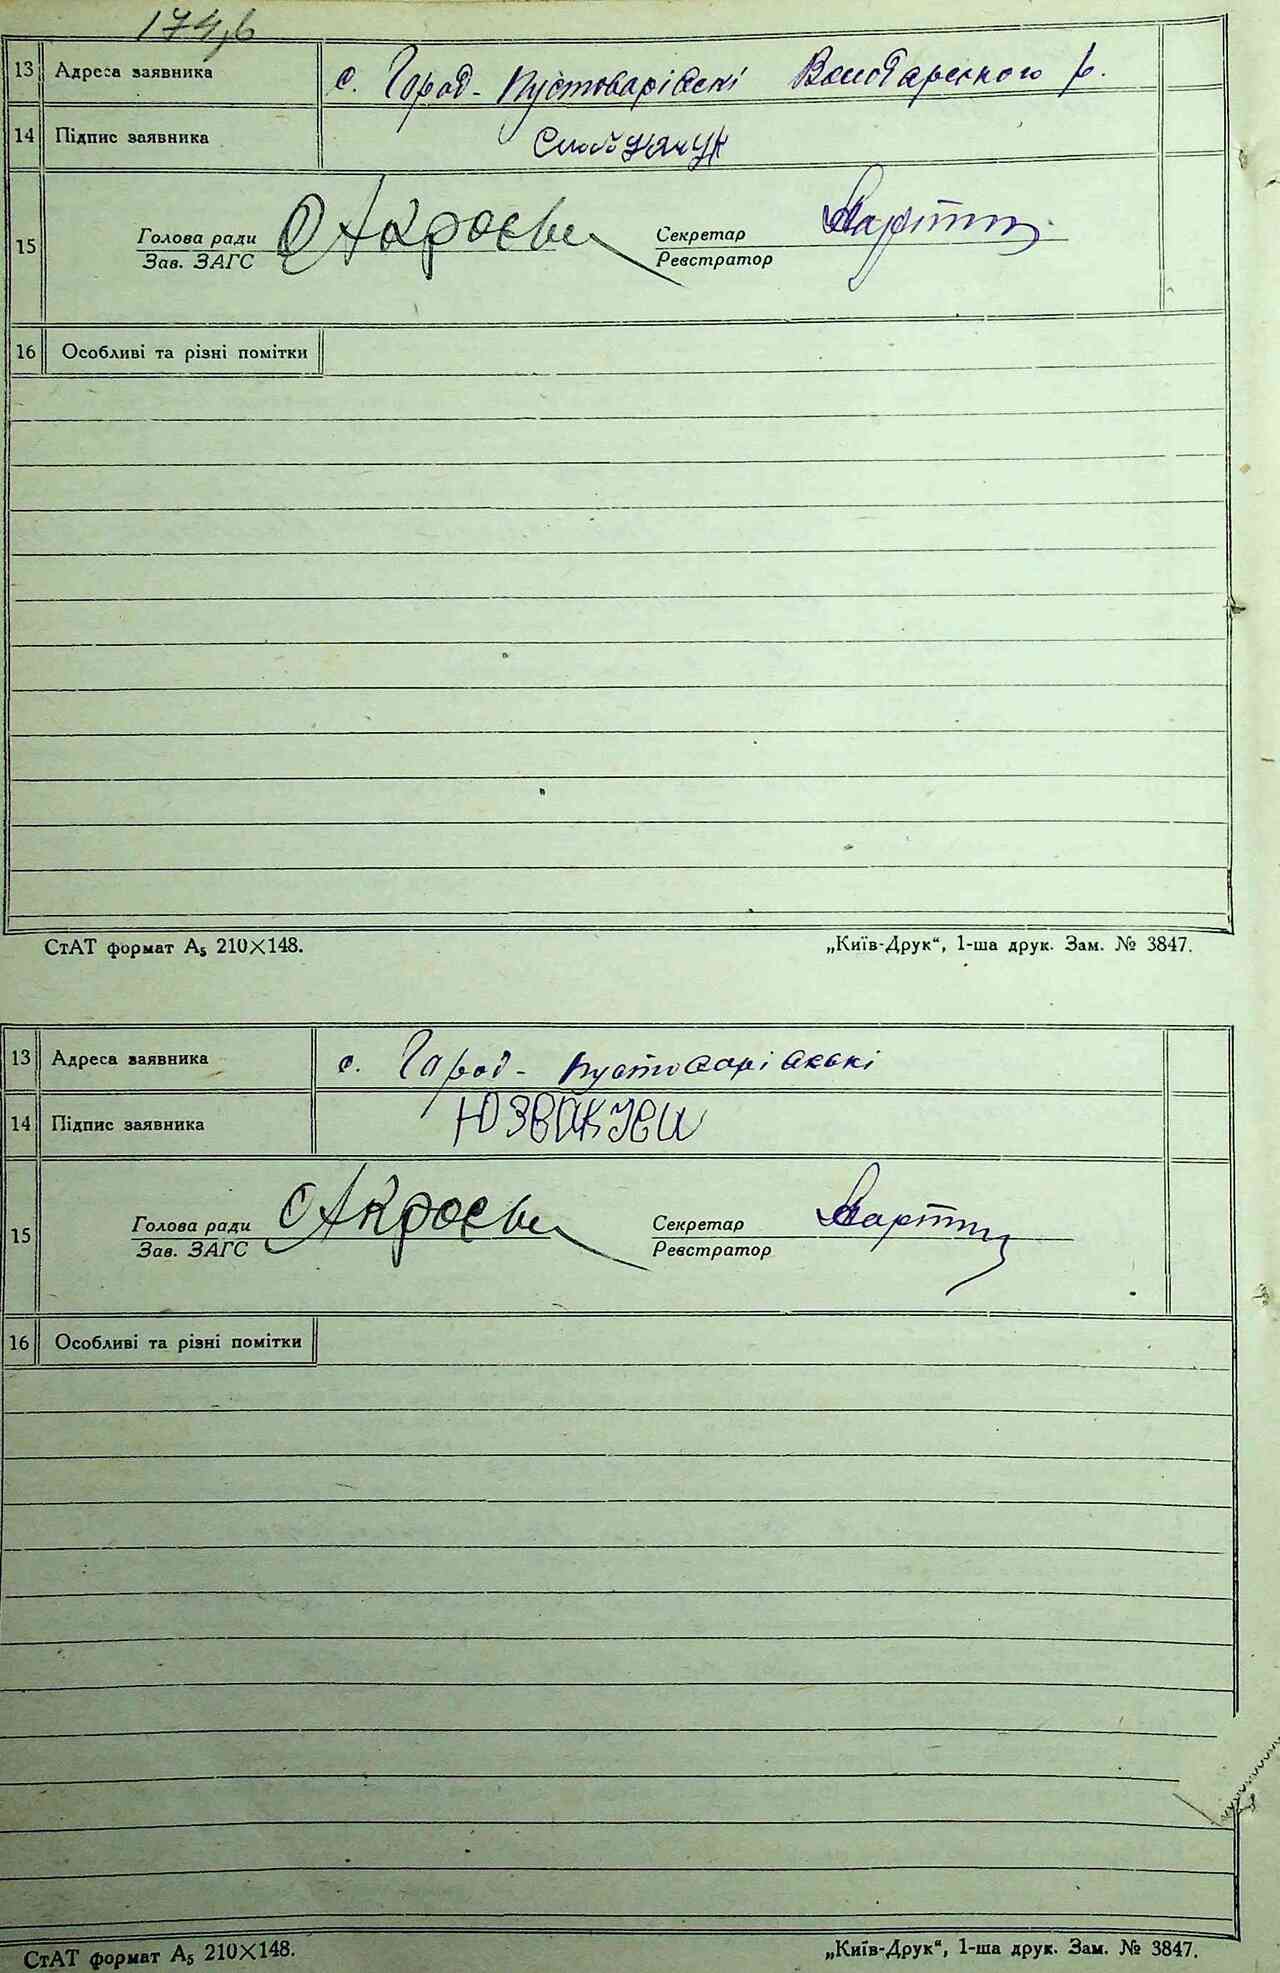 13 Адреса заявника с. Город-Пустоварівські Володарського р.
14 Підпис заявника
15 Голова ради Секретар
Зав. ЗАГС Реєстратор
16 Особливі та різні помітки
СтАТ формат А₅ 210×148. „Київ-Друк“, 1-ша друк. Зам. № 3847.
13 Адреса заявника с. Город-Пустоварівські
14 Підпис заявника
15 Голова ради Секретар
Зав. ЗАГС Реєстратор
16 Особливі та різні помітки
СтАТ формат А₅ 210×148. „Київ-Друк“, 1-ша друк. Зам. № 3847.